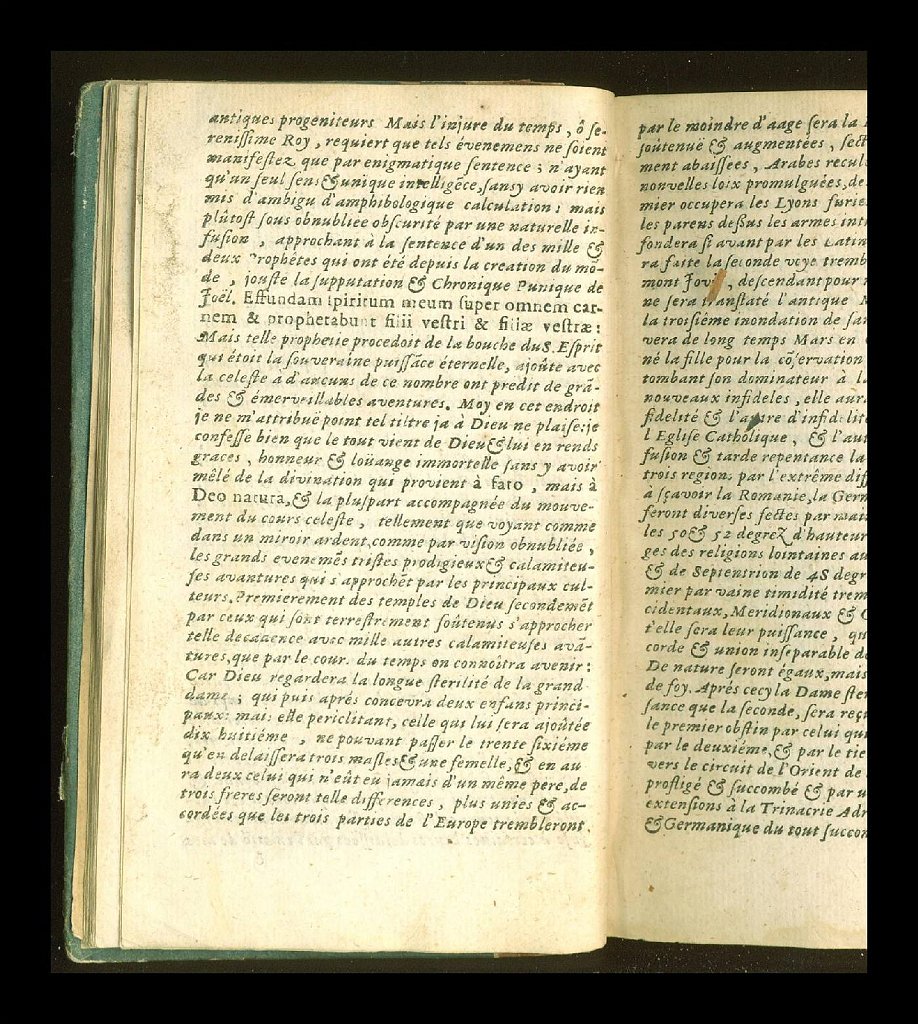 antiques progeniteurs Mais l'injure du temps, ô se-
renissime Roy, requiert que tels évenemens ne soient
manifestez que par enigmatique sentence; n'ayant
qu'un seul sens & unique intelligẽce, sans y avoir rien
mis d'ambigu d'amphibologique calculation: mais
plûtost sous obnubliée obscurité par une naturelle in-
fusion, approchant à la sentence d'un des mille &
deux Prophétes qui ont été depuis la creation du mõ-
de, jouste la supputation & Chronique Punique de
Joël. Effundam spiritum meum super omnem car-
nem & prophetabunt filii vestri & filiæ vestræ:
Mais telle prophetie procedoit de la bouche du S. Esprit
qui étoit la souveraine puissãce éternelle, ajoûte avec
la celeste a d'aucuns de ce nombre ont prédit de grã-
des & émerveillables aventures. Moy en cet endroit
je ne m'attribuë point tel tiltre ja à Dieu ne plaise: je
confesse bien que le tout vient de Dieu & lui en rends
graces, honneur & loüange immortelle sans y avoir
mêlé de la divination qui provient à fato, mais à
Deo natura, & la pluspart accompagnée du mouve-
ment du cours celeste, tellement que voyant comme
dans un miroir ardent, comme par vision obnubliée,
les grands evenemẽs tristes prodigieux & calamiteu-
ses avantures qui s'approchẽt par les principaux cul-
teurs. Premierement des temples de Dieu secondemẽt
par ceux qui sont terrestrement soûtenus s'approcher
telle decadence avec mille autres calamiteuses avã-
tures, que par le cour. du temps on connoîtra avenir:
Car Dieu regardera la longue sterilité de la grand
dame; qui puis aprés concevra deux enfans princi-
paux: mais elle periclitant, celle qui lui sera ajoûtée
dix huitiéme, ne pouvant passer le trente sixiéme
qu'en delaissera trois masles & une femelle, & en au
ra deux celui qui n'eût eu jamais d'un même pere, de
trois freres seront telle differences, plus unies & ac-
cordées que les trois parties de l'Europe trembleront.
par le moindre d'aage sera la
soûtenuë & augmentées, sect
ment abaissées, Arabes recul
nouvelles loix promulguées, de
mier occupera les Lyons furie
les parens dessus les armes int
fondera si avant par les Latin
ra faite la seconde voye tremb
mont Jovis, descendant pour
ne sera translaté l'antique
la troisiéme inondation de san
vera de long temps Mars en
né la fille pour la cõservation
tombant son dominateur à l
nouveaux infideles, elle aura
fidelité & l'autre d'infidelité
l Eglise Catholique, & l'aut
fusion & tarde repentance la
trois regions par l'extrême dif
à sçavoir la Romanie, la Germ
feront diverses sectes par main
les 50 & 52 degrez d'hauteur
ges des religions lointaines au
& de Septentrion de 48 degr
mier par vaine timidité trem
cidentaux, Meridionaux &
t'elle sera leur puissance, qu
corde & union inseparable de
De nature seront égaux, mais
de foy. Aprés cecy la Dame ster
sance que la seconde, sera reçu
le premier obstin par celui qui
par le deuxiéme, & par le tie
vers le circuit de l'Orient de
profligé & succombé & par u
extensions à la Trinacrie Adr
& Germanique du tout succom